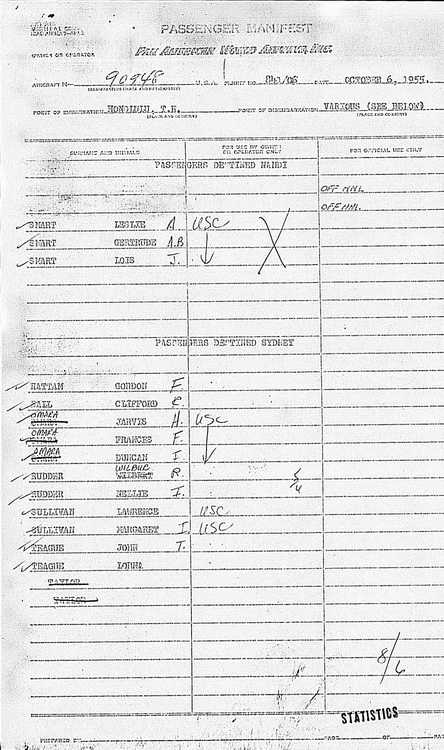 PASSENGER MANIFEST
PAN AMERICAN WORLD AIRWAYS, INC.
OWNER OR OPERATOR
AIRCRAFT N- 90948 U.S.A. FLIGHT NO. DATE OCTOBER 6, 1955.
POINT OF EMBARKATION HONOLULU, T.H. POINT OF DISEMBARKATION VARIOUS (SEE BELOW)
(PLACE AND COUNTRY) (PLACE AND COUNTRY)
SURNAME AND INITIALS FOR USE BY OWNER OR OPERATOR ONLY FOR OFFICIAL USE ONLY
PASSENGERS DESTINED NANDI
OFF HNL
OFF HNL
SMART LESLIE A. USC
SMART GERTRUDE A.B
SMART LOIS J.
PASSENGERS DESTINED SYDNEY
HATTAM GORDON E.
CLIFFORD C.
OMARA JARVIS H. USC
OMARA FRANCES F.
OMARA DUNCAN I.
WILBUR
RUDDER WILBERT R.
RUDDER NELLIE I.
SULLIVAN LAWRENCE USC
SULLIVAN MARGARET I. USC
TEAGUE JOHN T.
TEAGUE LORNA
TAYLOR
TAYLOR
8/6
STATISTICS
PREPARED BY PAGE OF